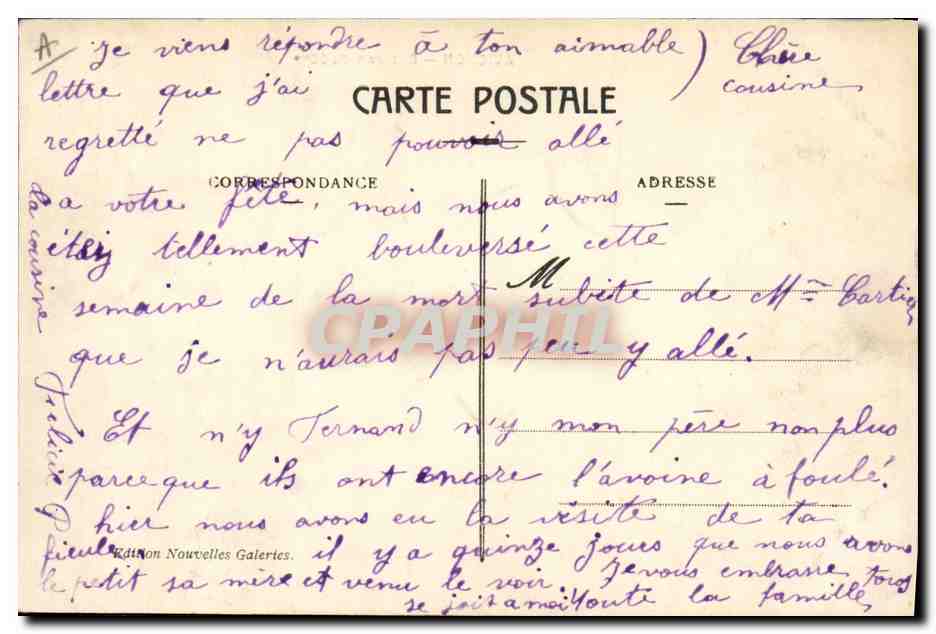 A
Chère
cousine
Je viens répondre à ton aimable
lettre que j'ai
CARTE POSTALE
regretté ne pas pouvoir allé
CORRESPONDANCE
ADRESSE
a votre fête, mais nous avons
étéy tellement bouleversé cette
M
semaine de la mort subite de Mme Cartier
CPAPHIL
que je n'aurais pas peu y allé.
Et n'y Fernand n'y mon père non plus
parceque ils ont encore l'avoine à foulé.
hier nous avons eu la visite de ta
fieule il y a quinze jours que nous avons
Edition Nouvelles Galeries.
le petit sa mère et venu le voir. Je vous embrasse tous
se joit a moi toute la famille
ta cousine Félicie P